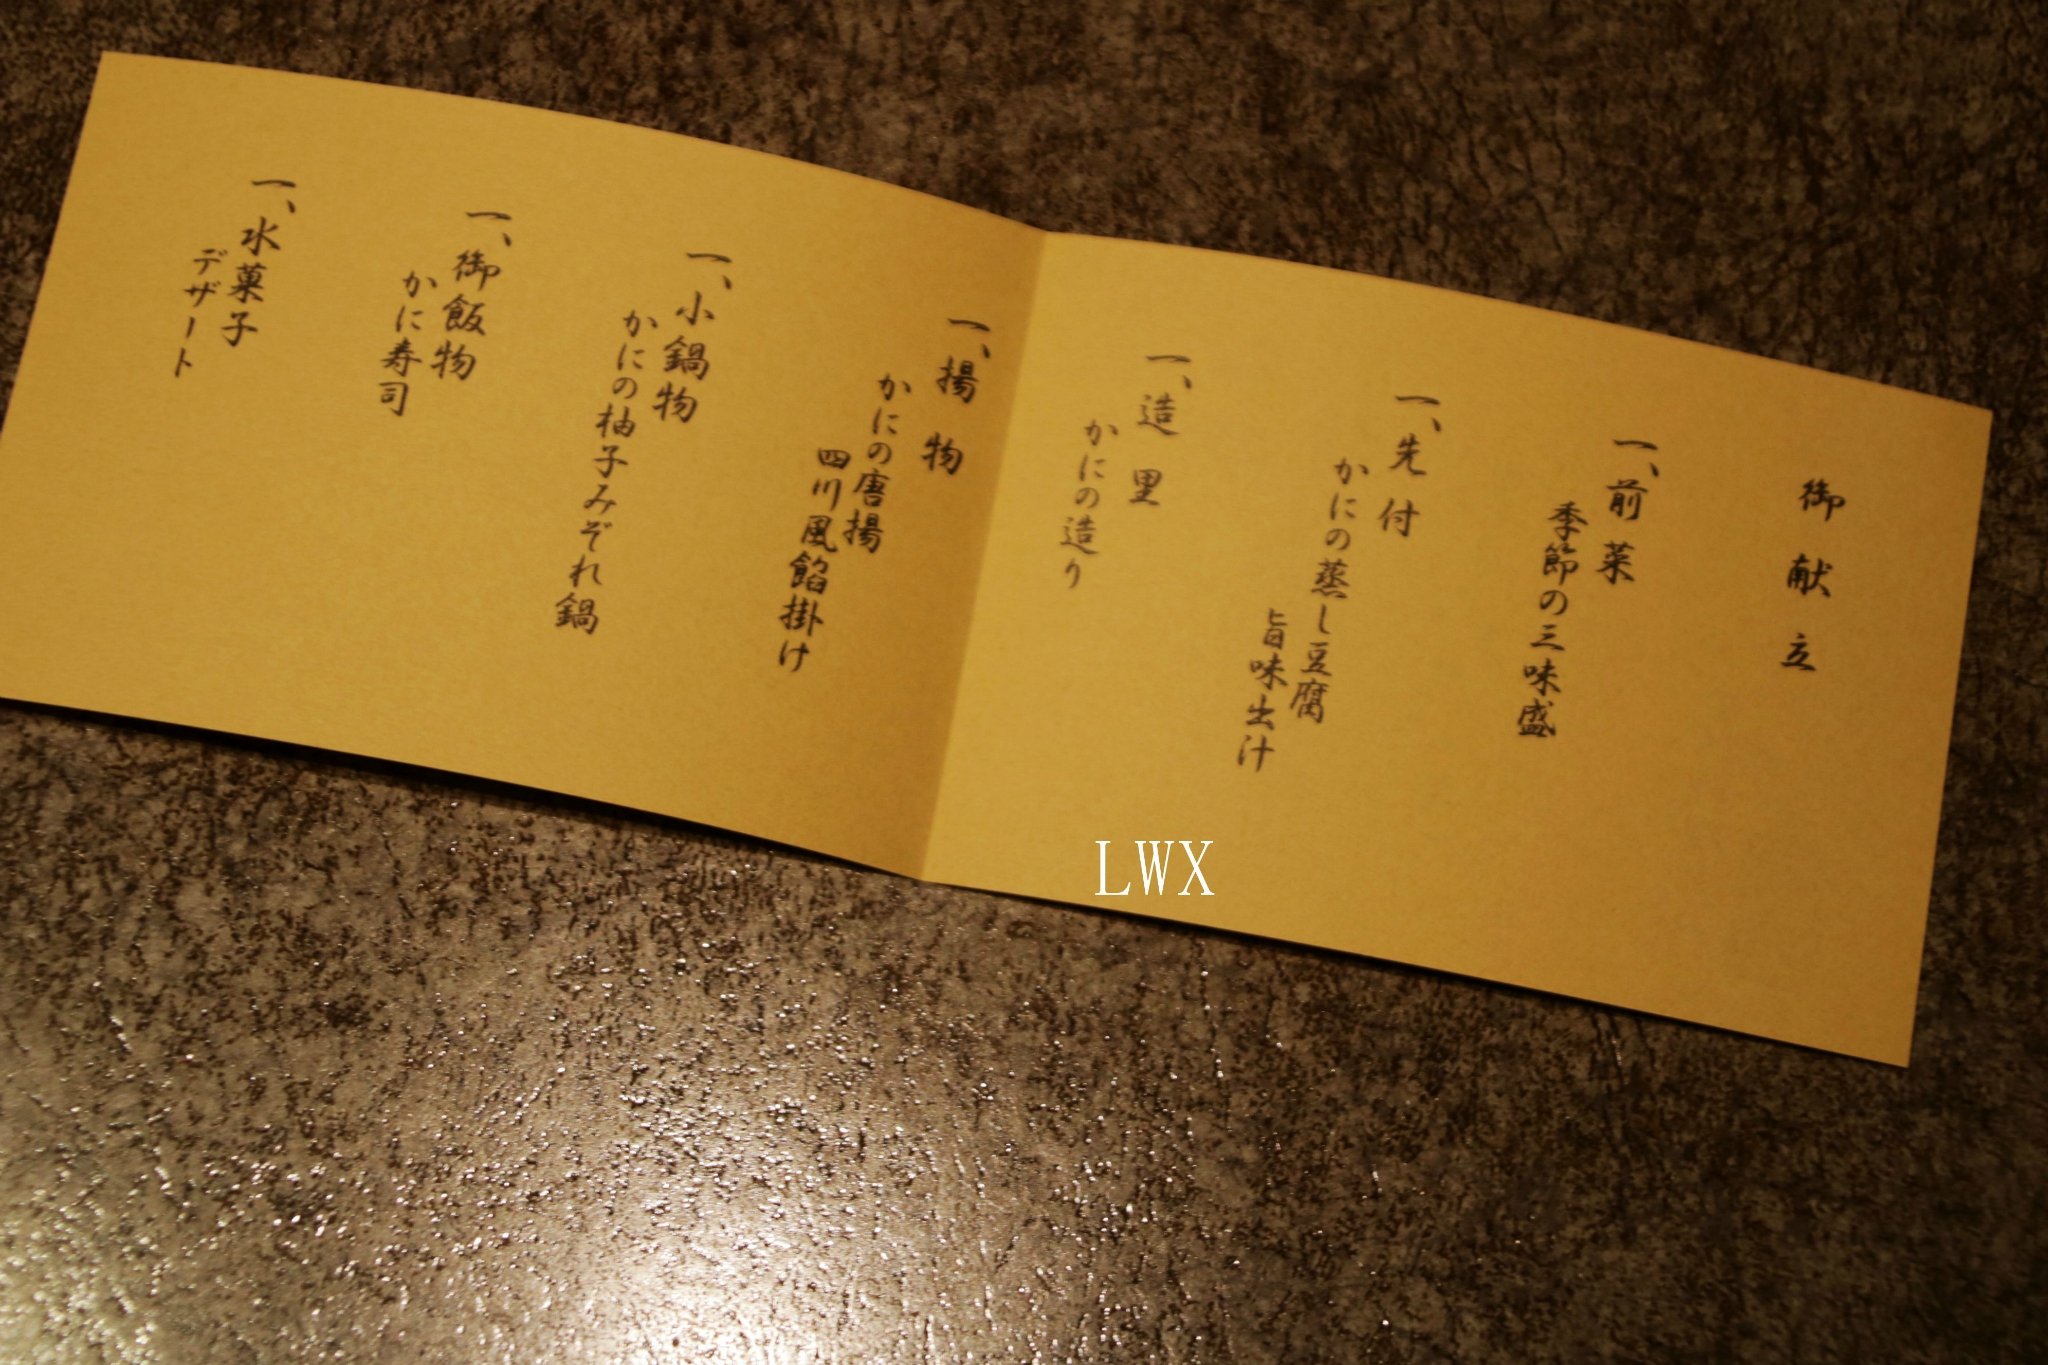 御献立
一、前菜
季節の三味盛
一、先付
かにの蒸し豆腐
旨味出汁
一、造里
かにの造り
一、揚物
かにの唐揚
四川風餡掛け
一、小鍋物
かにの柚子みぞれ鍋
一、御飯物
かに寿司
一、水菓子
デザート
LWX